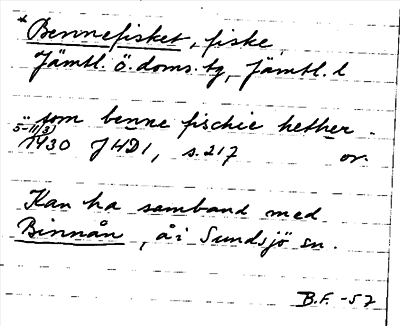 * Bennefisket, fiske
Jämtl. ö. doms. tg, Jämtl. l
"som benne fischie hether.
5-11/3
1430 JHD1, s. 217 or.
Kan ha samband med
Binnån, å i Sundsjö sn.
B.F. -57